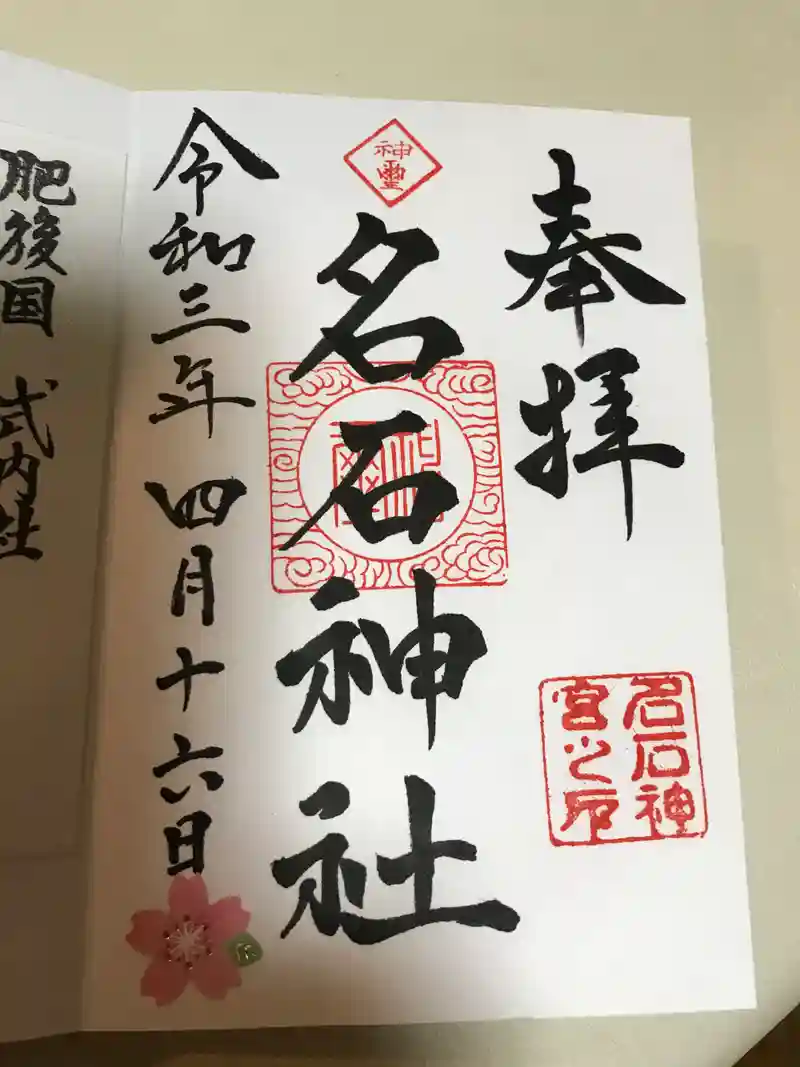 奉拝
名石神社
宮之印
神霊
名石神社
令和三年四月十六日
肥後国 式内社